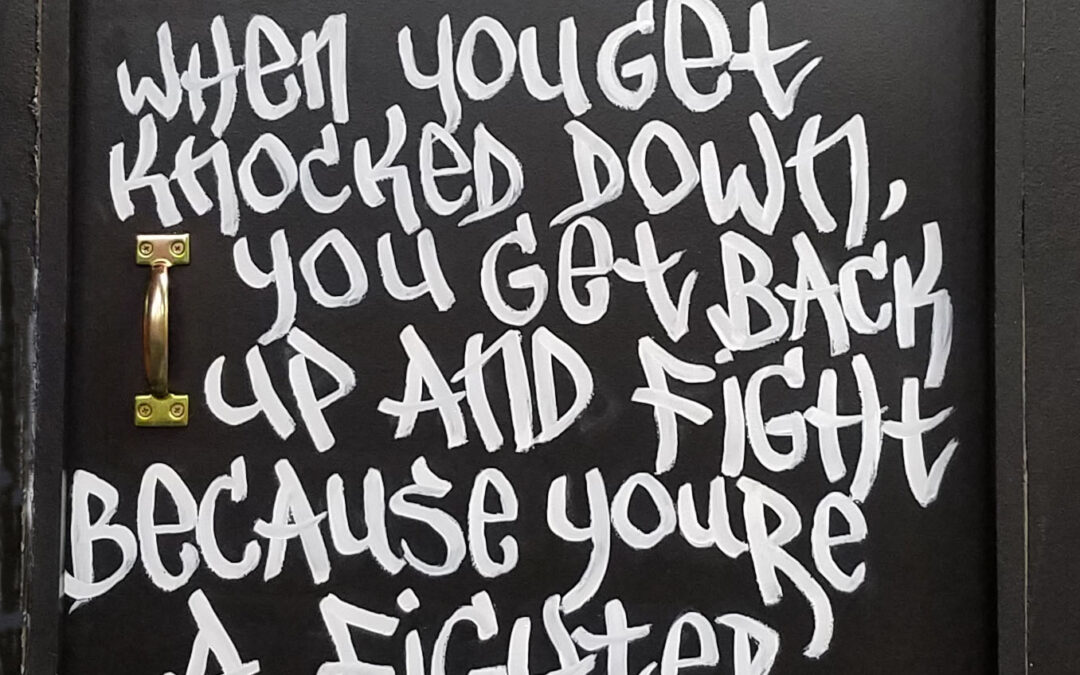 WHEN YOU GET
KNOCKED DOWN,
YOU GET BACK
UP AND FIGHT
BECAUSE YOURE
A FIGHTER